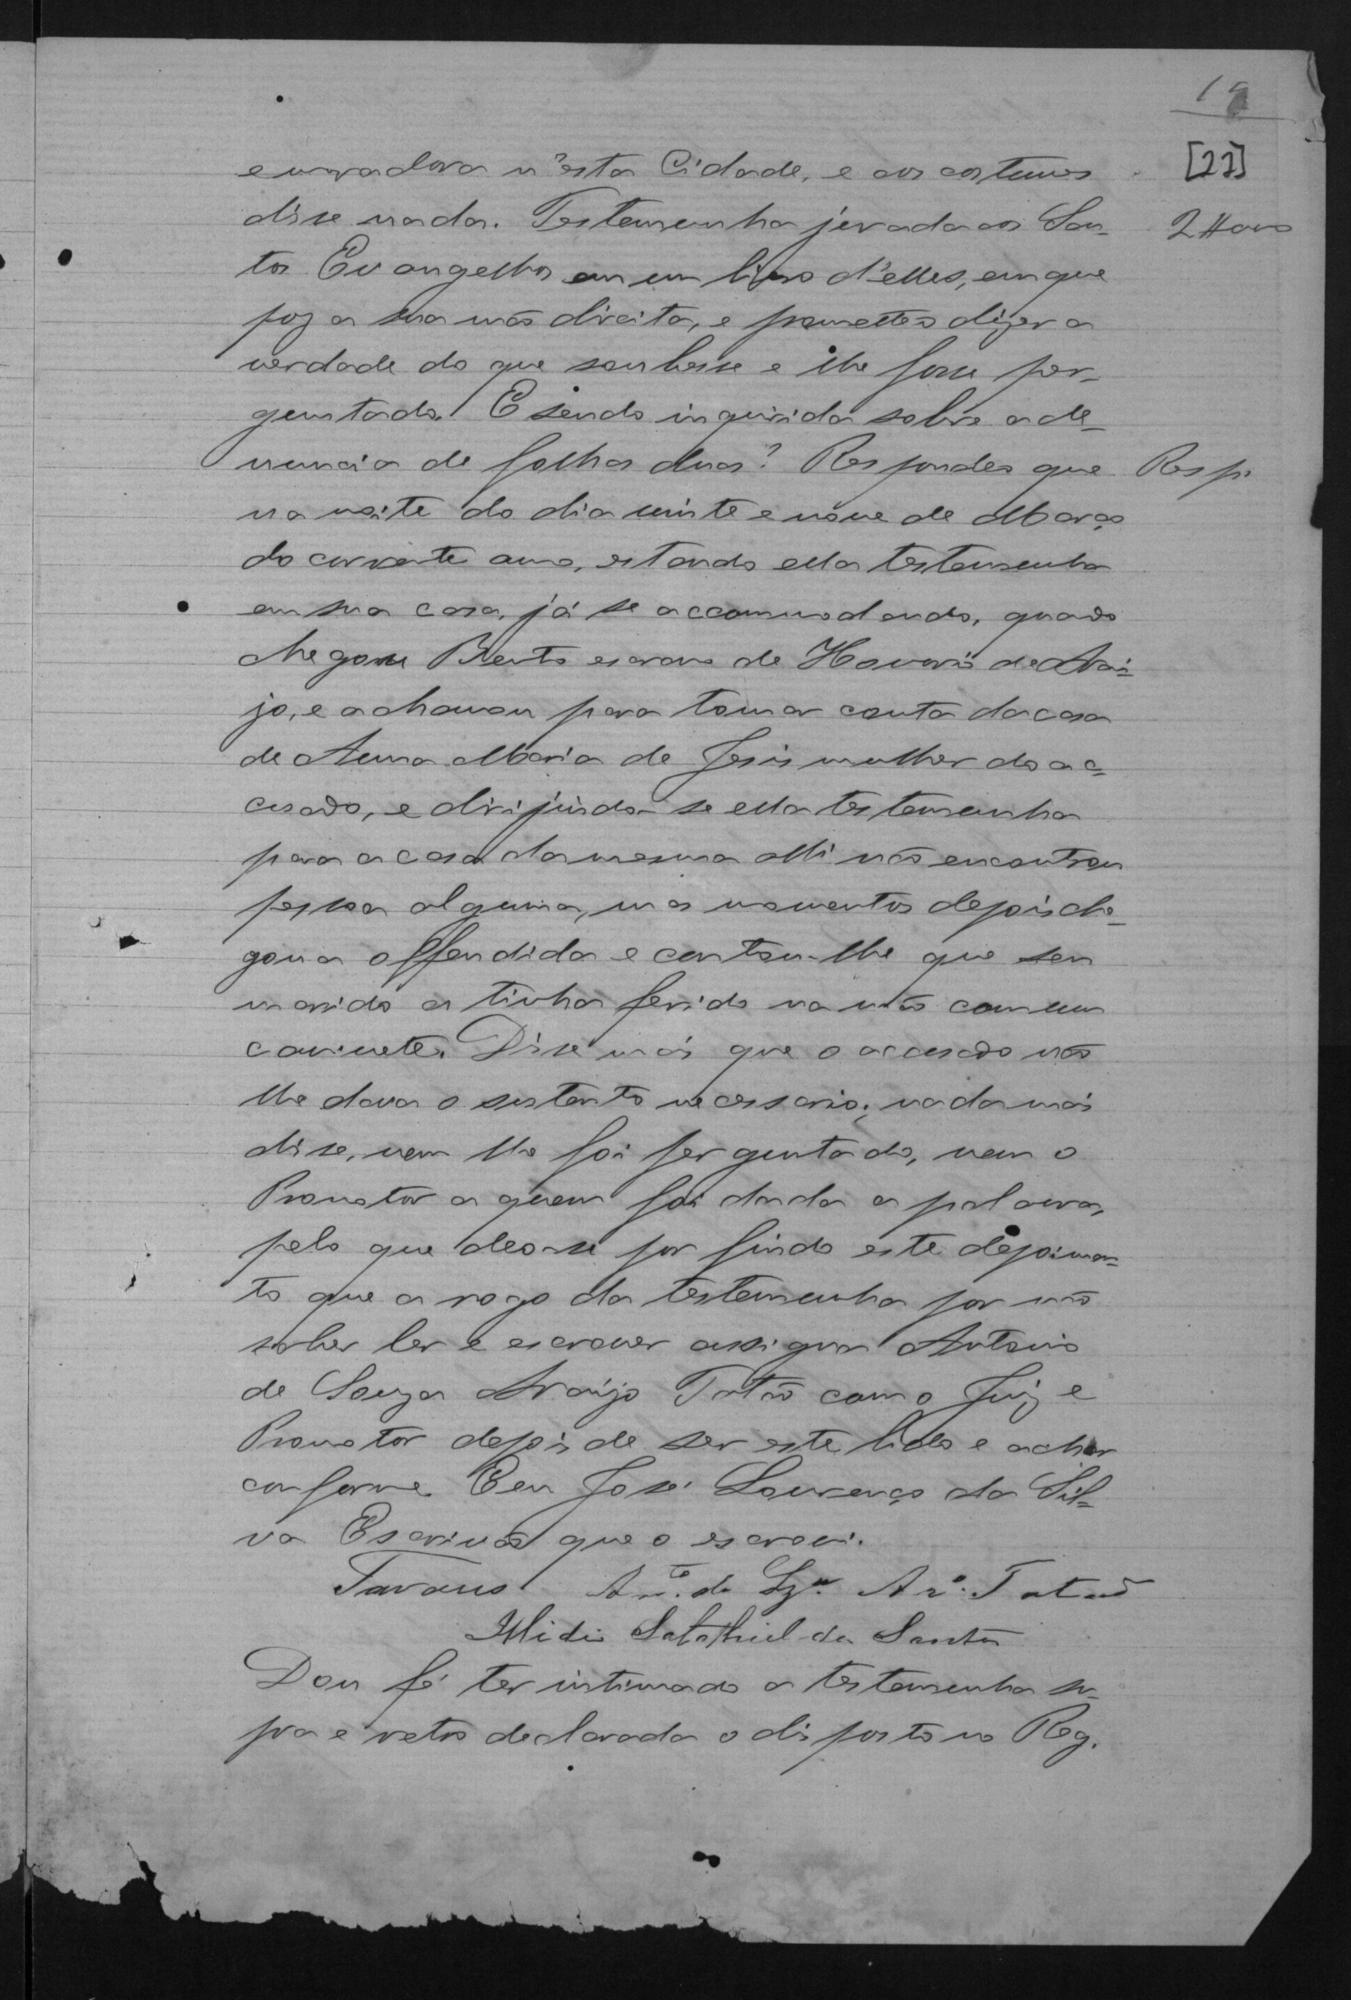 19
[22]
e moradora n'esta Cidade, e aos costumes
disse nada. Testemunha jurada aos San-
tos Evangelhos em um livro d'elles, em que
poz a sua mão direita, e prometteo dizer a
verdade do que soubesse e lhe fosse per-
guntado. E sendo inquirida sobre a de-
nuncia de folhas duas? Respondeo que Resp.
na noite do dia vinte e nove de Março
do corrente anno, estando ella testemunha
em sua casa, já se accommodando, quando
chegou Bento escravo de Honorio de Arau-
jo, e a chamou para tomar conta da casa
de Anna Maria de Jesus mulher do ac-
cusado, e dirijindo-se ella testemunha
para a casa da mesma alli não encontrou
pessoa alguma, mas momentos depois che-
gou a offendida e contou-lhe que seu
marido a tinha ferido na mão com um
canivete. Disse mais que o accusado não
lhe dava o sustento necessario; nada mais
disse, nem lhe foi perguntado, nem o
Promotor a quem foi dada a palavra,
pelo que deo-se por findo este depoimen-
to que a rogo da testemunha por não
saber ler e escrever assigna Antonio
de Souza Araújo Tatão com o Juiz e
Promotor depois de ser este lido e achar
conforme. Eu José Lourenço da Sil-
va Escrivão que o escrevi.
Tavares Anto. de Sza. Aro. Tatão
Illidio Salathiel dos Santos
Dou fé ter intimado a testemunha su-
pra e retro declarada o disposto no Reg.